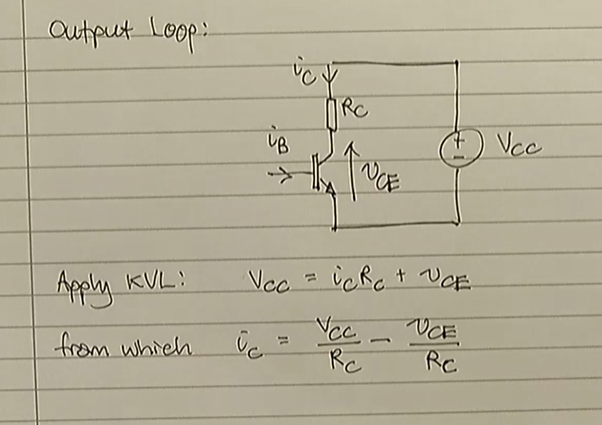 Output Loop:
i_C
R_C
i_B
v_CE
+
-
V_CC
Apply KVL: V_CC = i_C R_C + v_CE
from which i_C = V_CC/R_C - v_CE/R_C